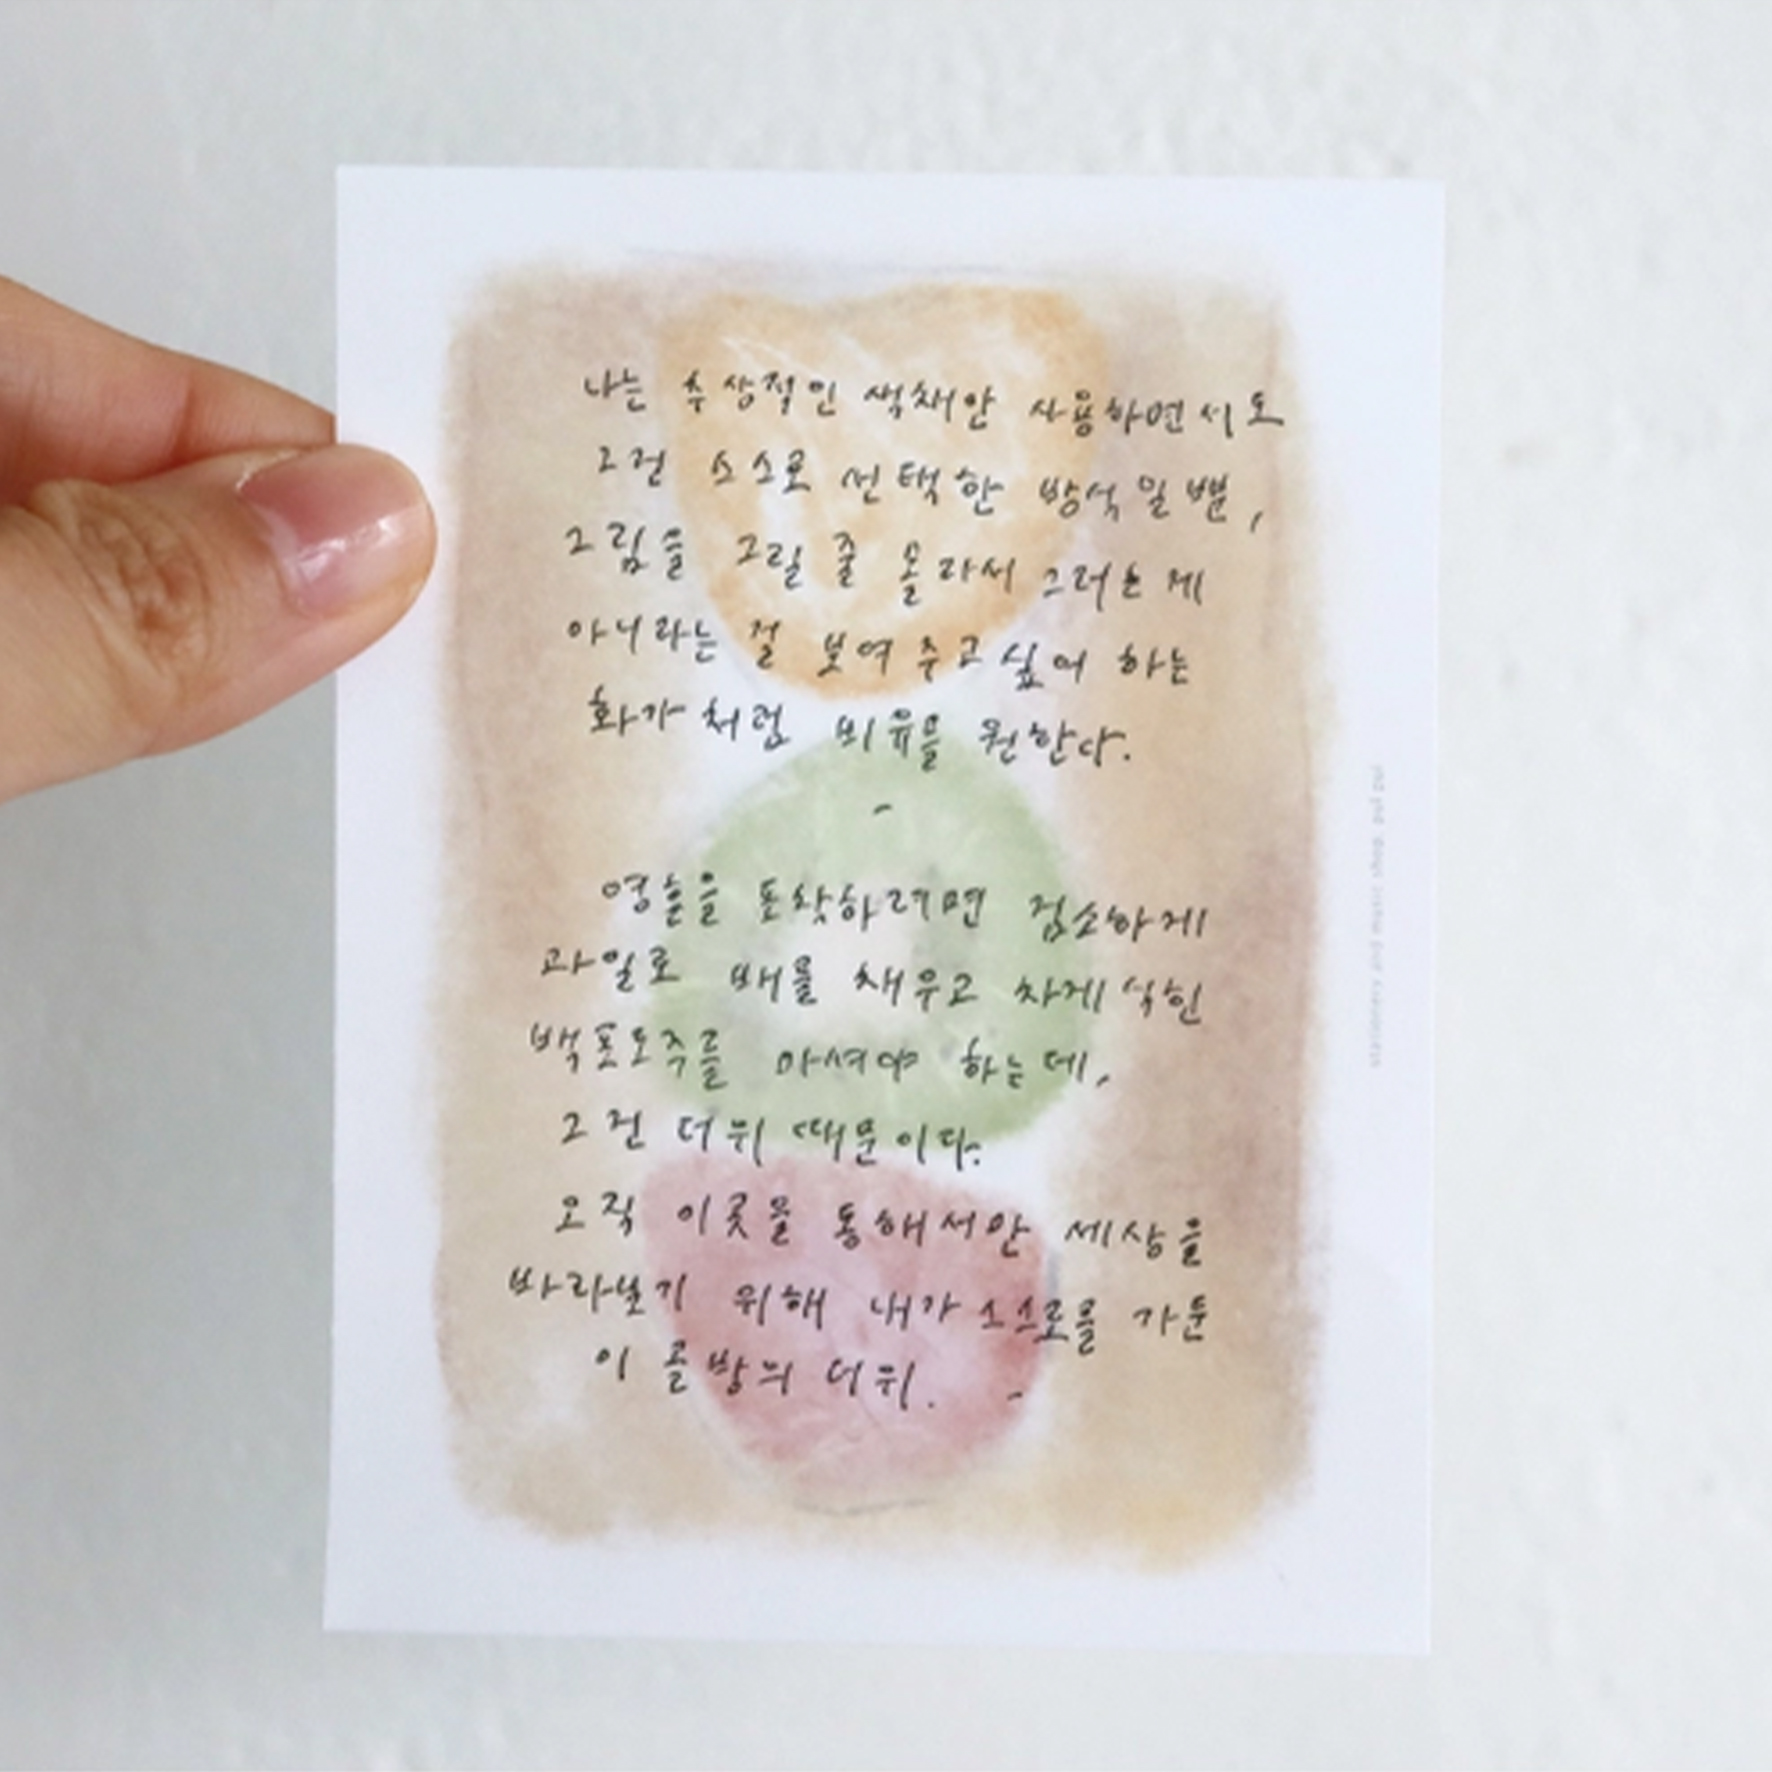 나는 추상적인 색채만 사용하면서도
그건 스스로 선택한 방식일 뿐,
그림을 그릴 줄 몰라서 그러는 게
아니라는 걸 보여 주고 싶어 하는
화가처럼 비유를 원한다.
-
영혼을 포착하려면 검소하게
과일로 배를 채우고 차게 식힌
백포도주를 마셔야 하는데,
그건 더위 때문이다.
오직 이곳을 통해서만 세상을
바라보기 위해 내가 스스로를 가둔
이 골방의 더위. -